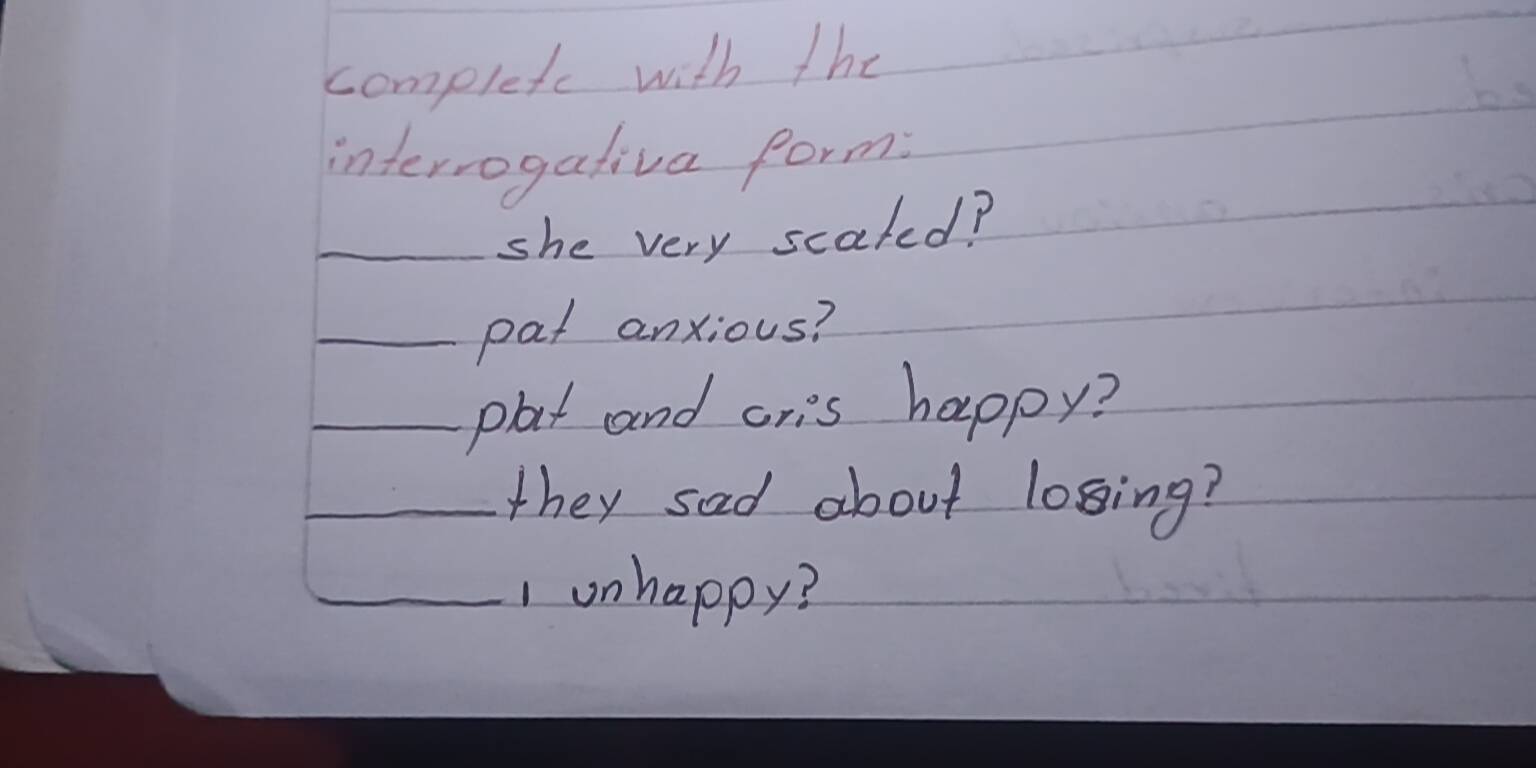 complete with the
interrogativa form:
______ she very scated?
______ pat anxious?
______ pat and cris happy?
______ they sad about losing?
______ I unhappy?